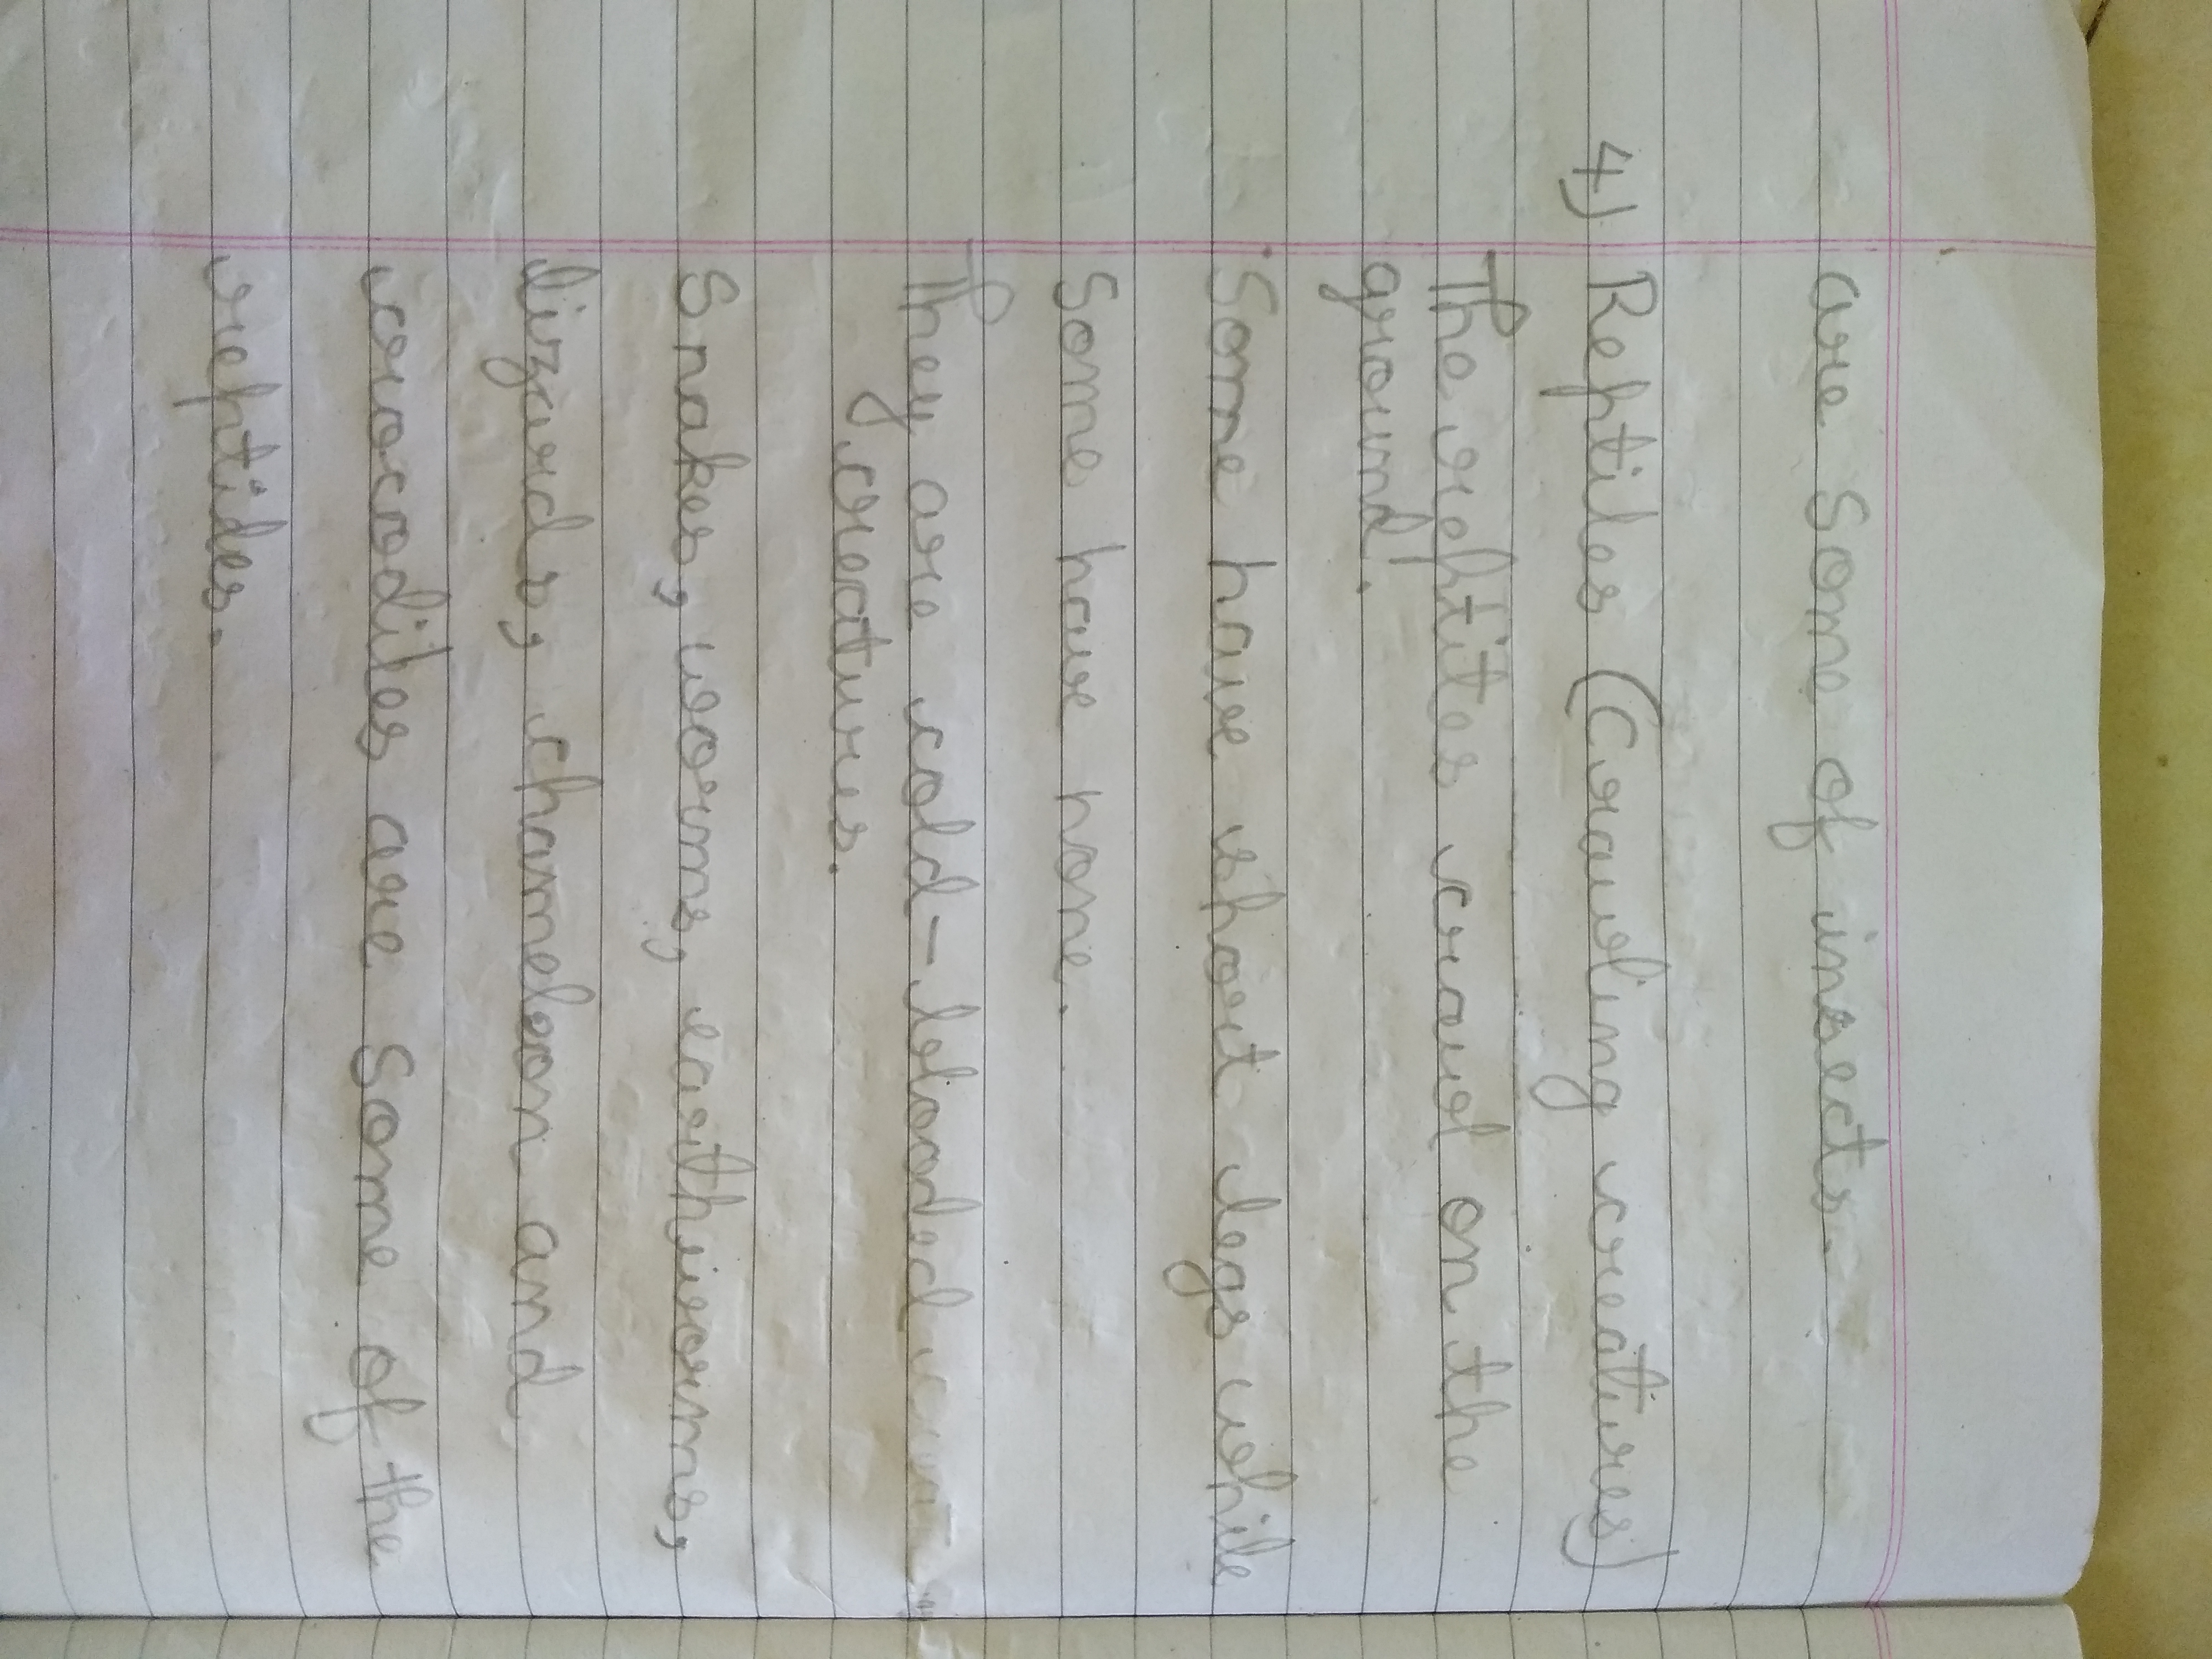 are Some of insects.
4) Reptiles (Crawling creatures)
The reptites crawl on the
ground.
Some have short legs while
Some have none.
They are cold-blooded
creatures.
Snakes, worms, earthworms,
lizards, chameleon and
crocodiles are Some of the
reptiles.